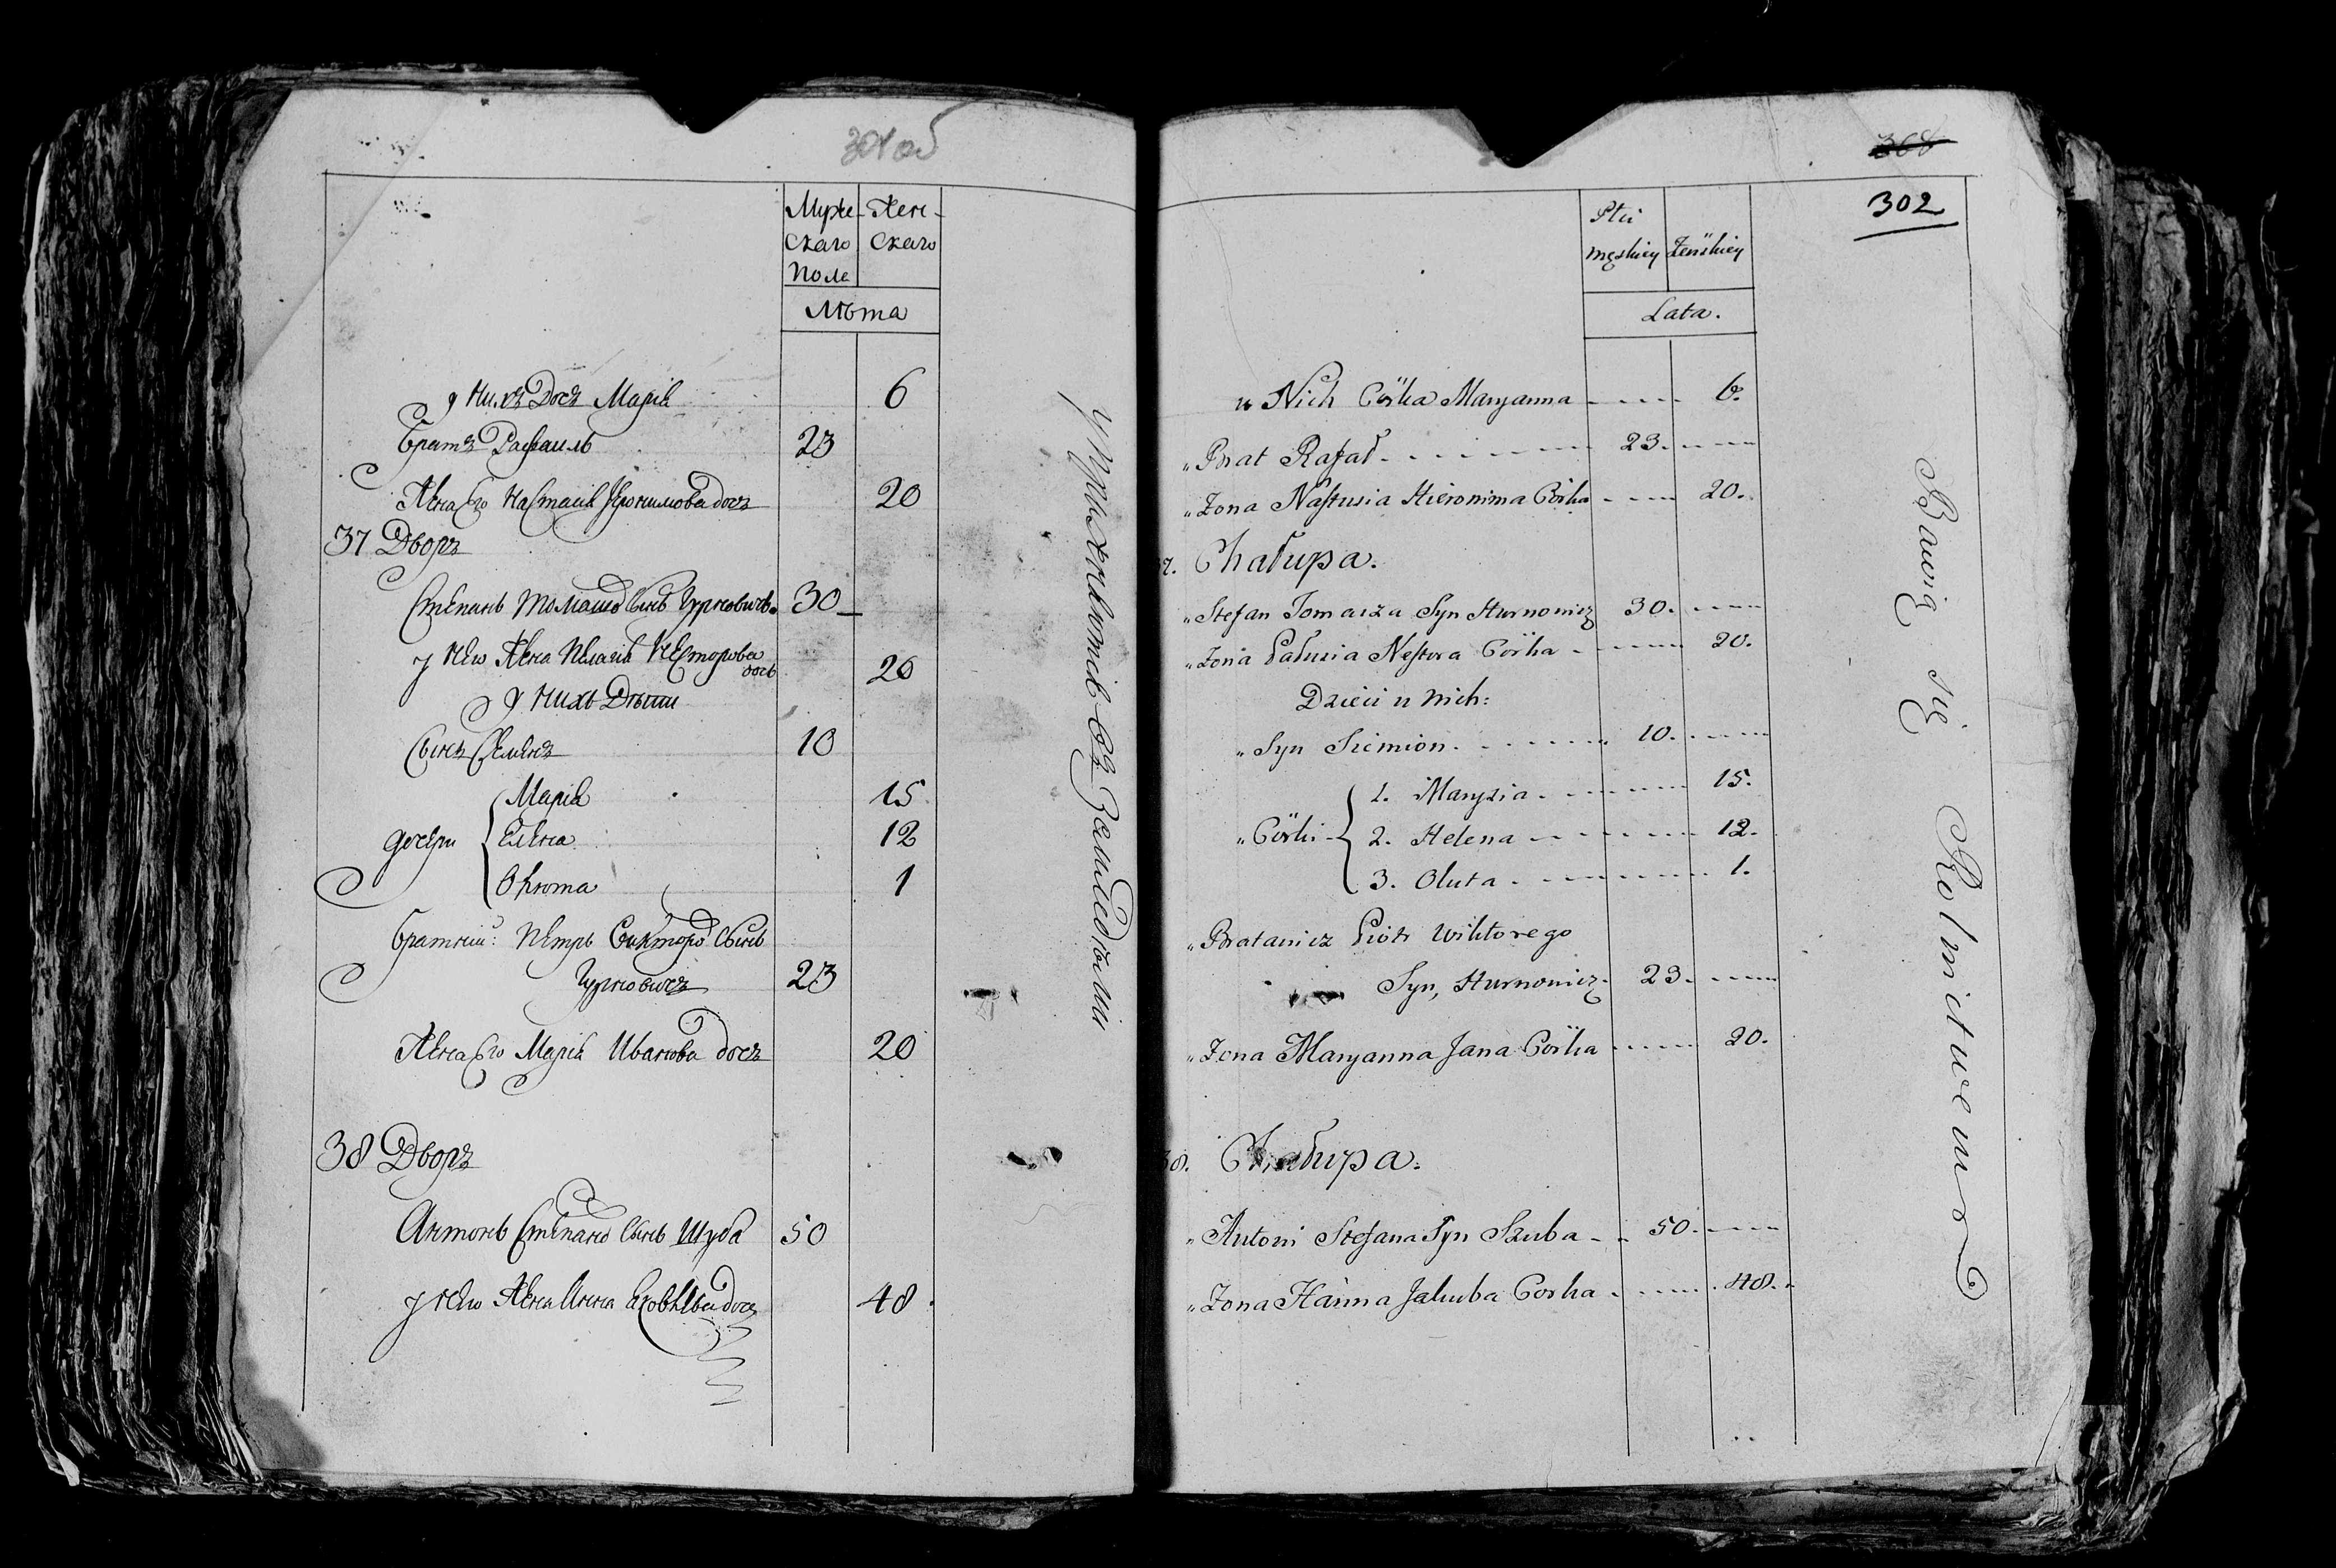 301 об
Муже-
скаго
Пола
Жен-
скаго
Лѣта
у нихъ Дочь Марія 6
Братъ Рафаилъ 23
Жена Его Настасія Іеронимова дочь 20
37 Дворъ
Степанъ Томашов Сынъ Гурновичъ 30
у него Жена Пелагія Несторова дочь 20
у нихъ Дѣти
Сынъ Семенъ 10
дочери { Марія 15
Елена 12
Окюта 1
Братнии: Петръ Викторов Сынъ
Гурновичъ 23
Жена Его Марія Иванова дочь 20
38 Дворъ
Антонъ Степанов Сынъ Шуба 50
у него Жена Анна Яковлева дочь 48
Упражняются въ Земледѣлии
368
302
Płci
męskiey
Żeńskiey
Lata.
u Nich Córka Maryanna 6.
„ Brat Rafał 23.
„ Zona Nastusia Hieronima Córka 20.
37. Chałupa.
„ Stefan Tomasza Syn Hurnowicz 30.
„ Zona Pałusia Nestora Córka 20.
Dzieci u nich:
„ Syn Siemion 10.
„ Córki { 1. Marysia 15.
2. Helena 12.
3. Oluta 1.
„ Bratanicz Piotr Wiktorego
Syn, Hurnowicz 23.
„ Zona Maryanna Jana Córka 20.
38. Chałupa.
„ Antoni Stefana Syn Szuba 50.
„ Zona Hanna Jakuba Corka 48.
Bawią się Rolnictwem